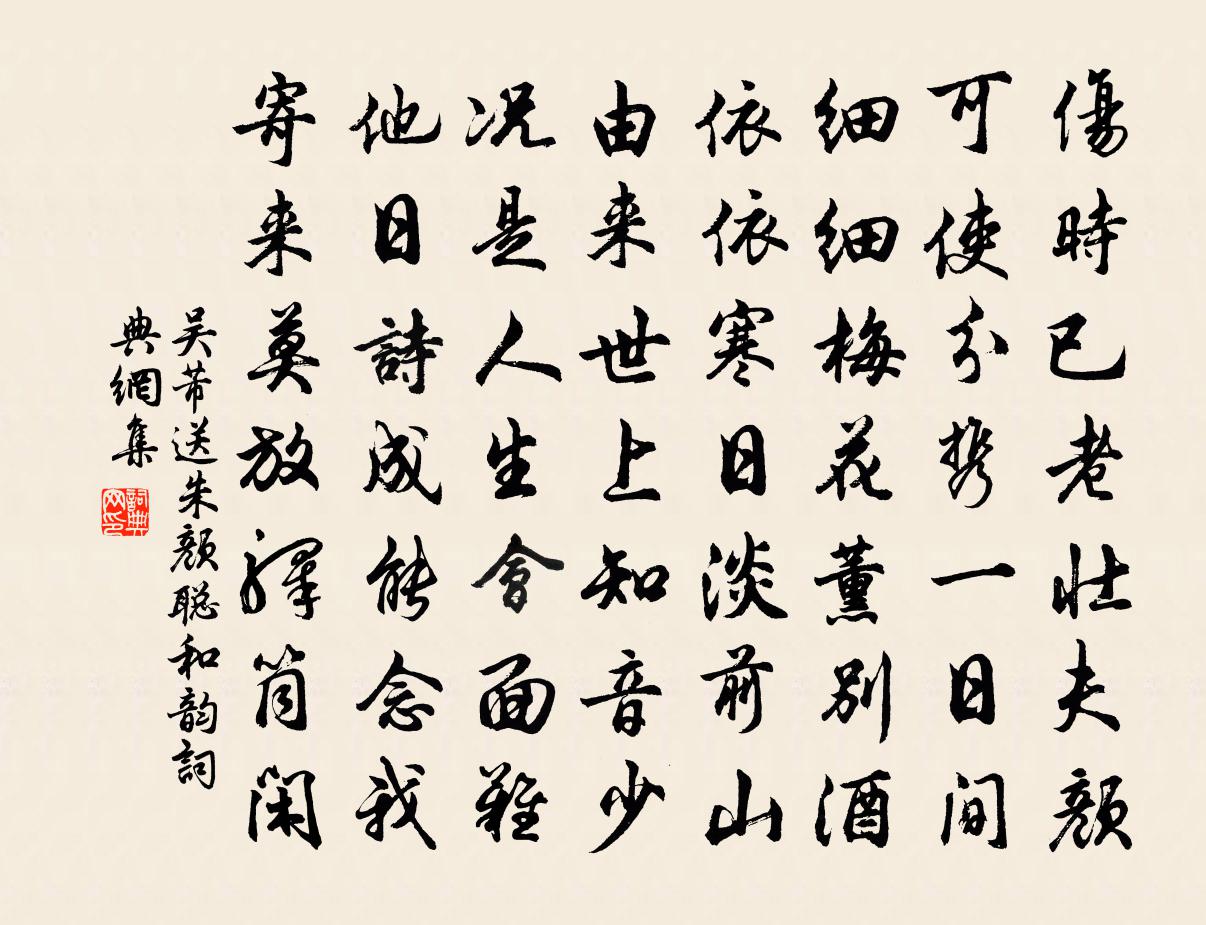 傷時已老壯夫顏
可使分携一日間
细细梅花薰别酒
依依寒日淡前山
由来世上知音少
况是人生會面難
他日詩成能念我
寄来莫放驛筒闲
吴芾送朱顏聪和韵詞
典網集
詞典网印